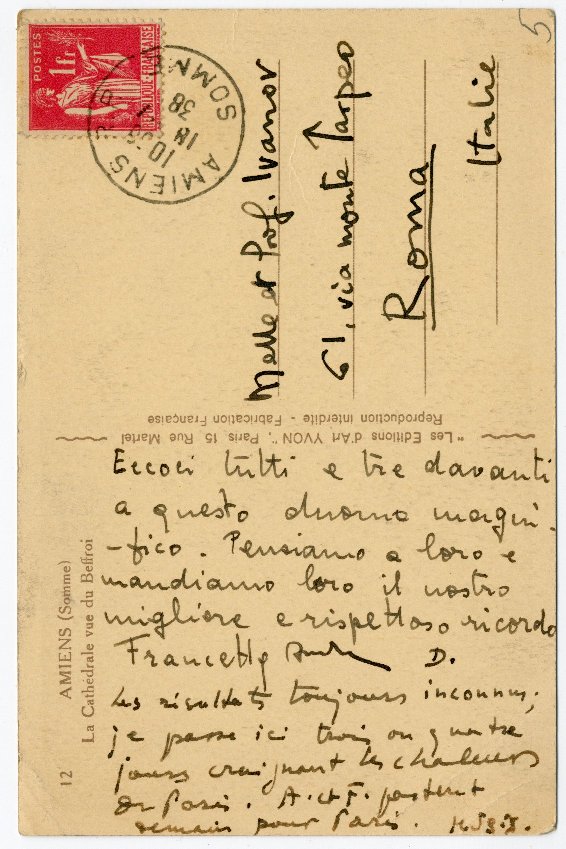 5
POSTES
1 fr
REPUBLIQUE FRANÇAISE
AMIENS
SOMME
10
18
38
Melle et Prof. Ivanov
61, via monte Tarpeo
Roma
Italie
"Les Éditions d'Art YVON", Paris 15 Rue Martel
Reproduction interdite - Fabrication Française
12 AMIENS (Somme)
La Cathédrale vue du Beffroi
Eccoci tutti e tre davanti
a questo duomo magni-
-fico. Pensiamo a loro e
mandiamo loro il nostro
migliore e rispettoso ricordo
D.
Les résultats toujours inconnus,
je passe ici trois ou quatre
jours craignant les chaleurs
de Paris. A. et F. partent
demain pour Paris.